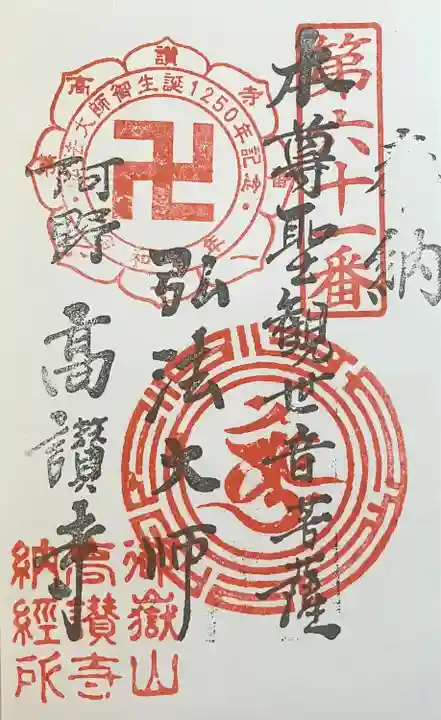 奉納
第六十一番
本尊聖観世音菩薩
弘法大師
阿野 高讃寺
大師御生誕1250年記念
高讃寺
御嶽山
高讃寺
納経所